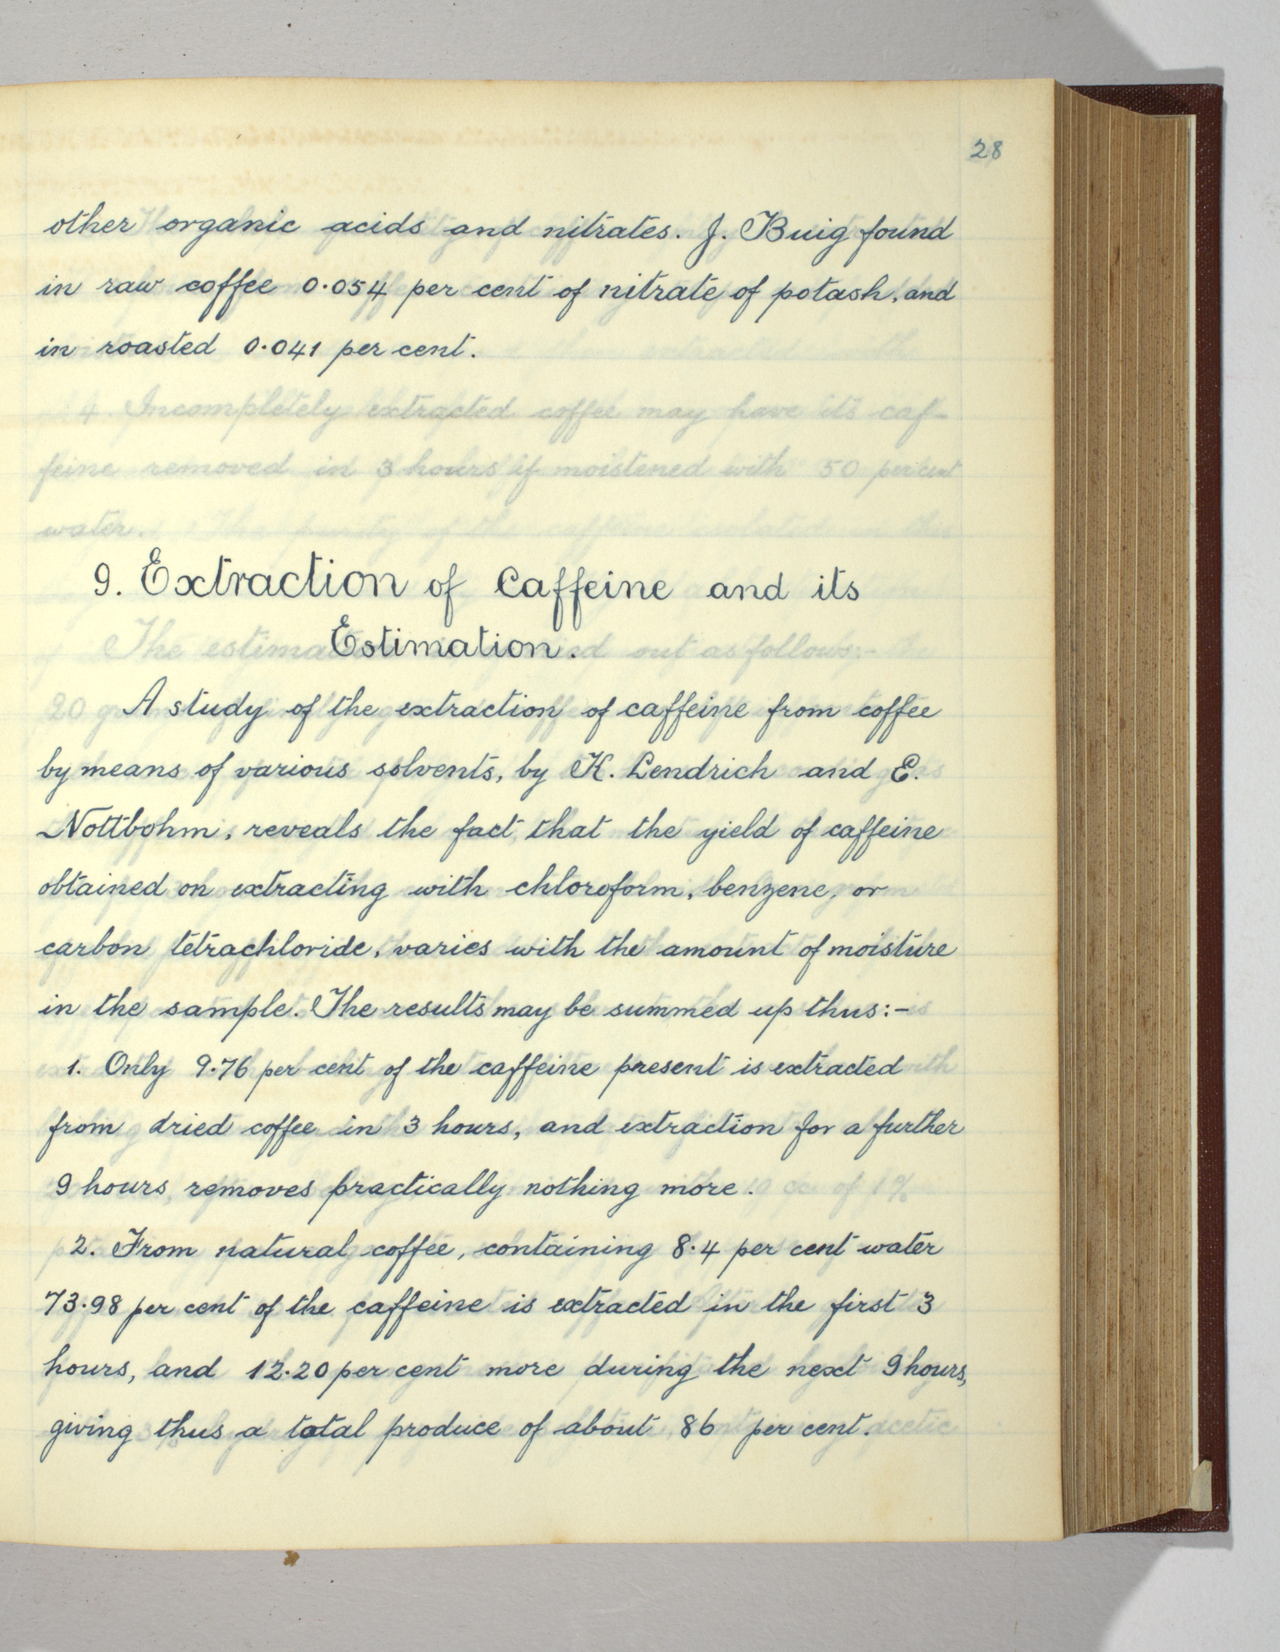 28
other organic acids and nitrates. J. Buig found
in raw coffee 0·054 per cent of nitrate of potash, and
in roasted 0·041 per cent.
4. Incompletely extracted coffee may have its caf-
feine removed in 3 hours if moistened with 50 per cent
water.
9. Extraction of Caffeine and its
Estimation.
A study of the extraction of caffeine from coffee
by means of various solvents, by K. Lendrich and E.
Nottbohm, reveals the fact that the yield of caffeine
obtained on extracting with chloroform, benzene, or
carbon tetrachloride, varies with the amount of moisture
in the sample. The results may be summed up thus:-
1. Only 9·76 per cent of the caffeine present is extracted
from dried coffee in 3 hours, and extraction for a further
9 hours, removes practically nothing more.
2. From natural coffee, containing 8·4 per cent water
73·98 per cent of the caffeine is extracted in the first 3
hours, and 12·20 per cent more during the next 9 hours,
giving thus a total produce of about 86 per cent.